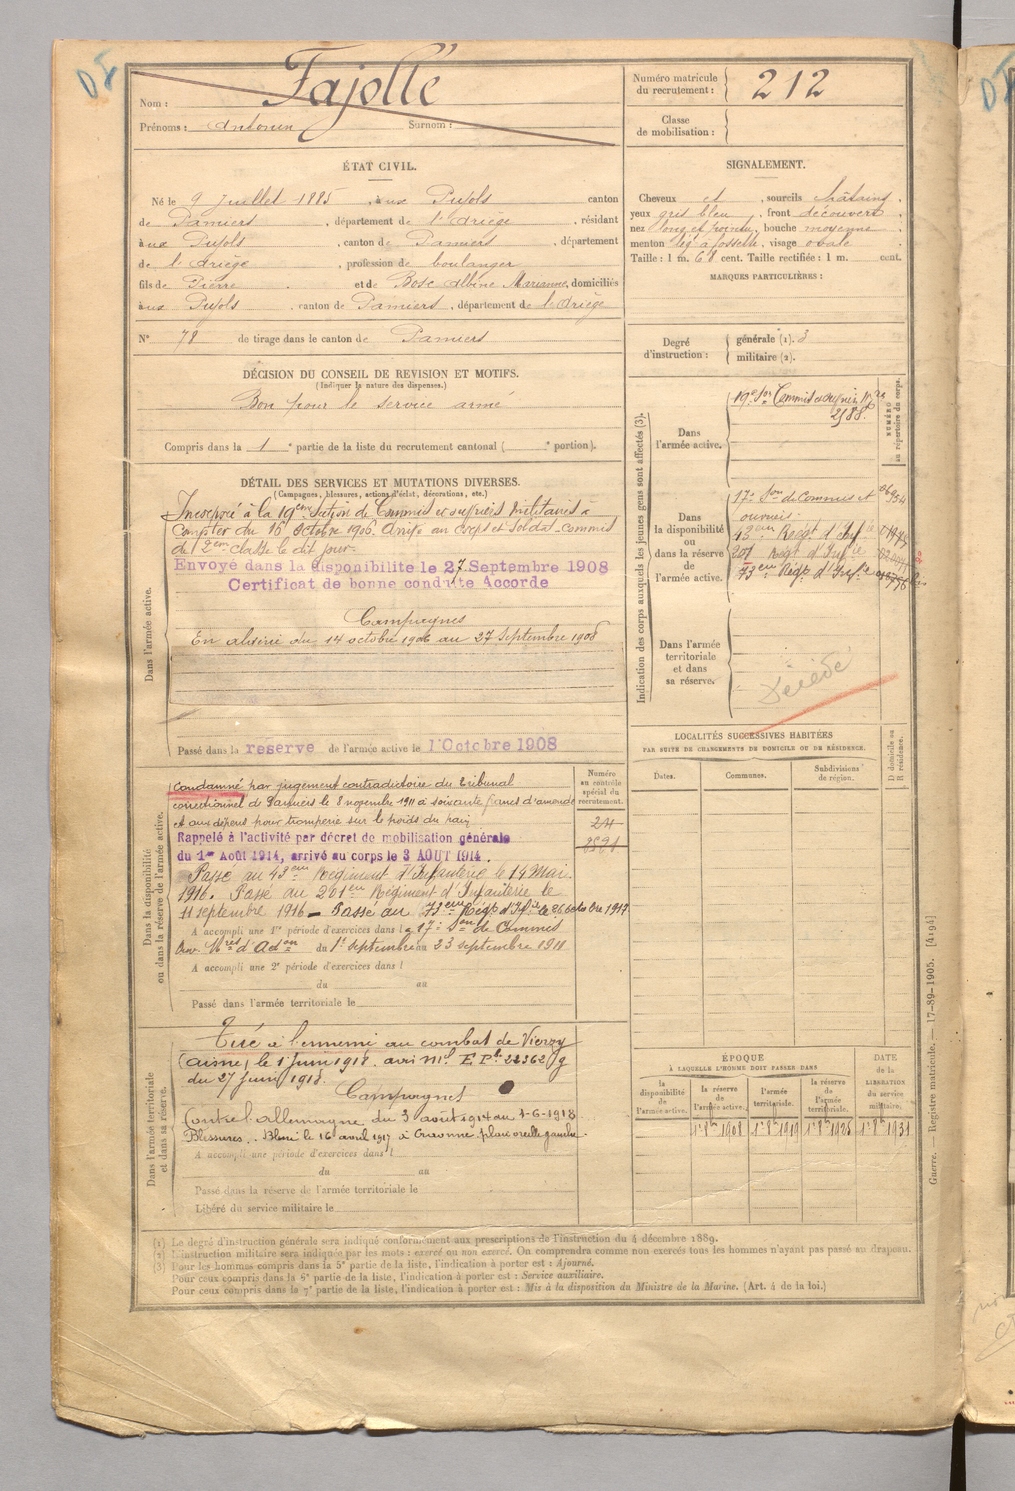 DÉ
Nom : Fajolle
Prénoms : Antonin Surnom :
Numéro matricule du recrutement : 212
Classe de mobilisation :
ÉTAT CIVIL.
Né le 9 juillet 1885, aux Pujols canton
de Pamiers, département de l'Ariège, résidant
aux Pujols, canton de Pamiers, département
de l'Ariège, profession de boulanger
fils de Pierre et de Bosc Albine Marianne, domiciliés
aux Pujols canton de Pamiers, département de l'Ariège
N° 78 de tirage dans le canton de Pamiers
SIGNALEMENT.
Cheveux et, sourcils châtains,
yeux gris bleu, front découvert,
nez long et pointu, bouche moyenne,
menton lég. à fossette, visage ovale
Taille : 1 m. 61 cent. Taille rectifiée : 1 m. cent.
MARQUES PARTICULIÈRES :
Degré d'instruction : générale (1). 3
militaire (2).
DÉCISION DU CONSEIL DE REVISION ET MOTIFS.
(Indiquer la nature des dispenses.)
Bon pour le service armé
Compris dans la 1e partie de la liste du recrutement cantonal ( e portion).
DÉTAIL DES SERVICES ET MUTATIONS DIVERSES.
(Campagnes, blessures, actions d'éclat, décorations, etc.)
Dans l'armée active.
Incorporé à la 19eme Section de Commis et ouvriers militaires à
compter du 16 octobre 1906. Arrivé au corps et Soldat commis
de 2eme classe le dit jour.
Envoyé dans la disponibilité le 27 Septembre 1908
Certificat de bonne conduite Accordé
Campagnes
En Algérie du 14 octobre 1906 au 27 Septembre 1908
Passé dans la réserve de l'armée active le 1 Octobre 1908
Indication des corps auxquels les jeunes gens sont affectés (3).
NUMÉRO au répertoire du corps.
Dans l'armée active.
19e Son Commis et ouvriers
2588
Dans la disponibilité ou dans la réserve de l'armée active.
17e Son de Commis et
ouvriers
43eme Régt d'Infie
201 Régt d'Infie
73eme Régt d'Infie
Dans l'armée territoriale et dans sa réserve.
Décédé
LOCALITÉS SUCCESSIVES HABITÉES
PAR SUITE DE CHANGEMENTS DE DOMICILE OU DE RÉSIDENCE.
D domicile ou R résidence.
Dates. Communes. Subdivisions de région.
Dans la disponibilité ou dans la réserve de l'armée active.
Numéro au contrôle spécial du recrutement.
Condamné par jugement contradictoire du tribunal
correctionnel de Pamiers le 8 novembre 1911 à soixante francs d'amende
et aux dépens pour tromperie sur le poids du pain
Rappelé à l'activité par décret de mobilisation générale
du 1er Août 1914, arrivé au corps le 3 AOUT 1914.
Passé au 43eme Régiment d'Infanterie le 14 Mai
1916. Passé au 201eme Régiment d'Infanterie le
11 septembre 1916 – Passé au 73eme Régt d'Infie le 26 octobre 1917
A accompli une 1re période d'exercices dans la 17e Son de Commis
Ouv. Mres d'Adon du 1er septembre au 23 septembre 1911
A accompli une 2e période d'exercices dans l
du au
Passé dans l'armée territoriale le
Dans l'armée territoriale et dans sa réserve.
Tué à l'ennemi au combat de Vierzy
(Aisne) le 1 juin 1918. avis Mel E Pl. 22362 g
du 27 juin 1918.
Campagnes
Contre l'allemagne du 3 août 1914 au 1-6-1918
Blessures. Blessé le 16 avril 1917 à Craonne plaie oreille gauche.
A accompli une période d'exercices dans l
du au
Passé dans la réserve de l'armée territoriale le
Libéré du service militaire le
ÉPOQUE
À LAQUELLE L'HOMME DOIT PASSER DANS
la disponibilité de l'armée active. la réserve de l'armée active. l'armée territoriale. la réserve de l'armée territoriale.
DATE de la LIBÉRATION du service militaire.
1er 8bre 1908 1er 8bre 1919 1er 8bre 1925 1er 8bre 1931
(1) Le degré d'instruction générale sera indiqué conformément aux prescriptions de l'instruction du 4 décembre 1889.
(2) L'instruction militaire sera indiquée par les mots : exercé ou non exercé. On comprendra comme non exercés tous les hommes n'ayant pas passé au drapeau.
(3) Pour les hommes compris dans la 5e partie de la liste, l'indication à porter est : Ajourné.
Pour ceux compris dans la 6e partie de la liste, l'indication à porter est : Service auxiliaire.
Pour ceux compris dans la 7e partie de la liste, l'indication à porter est : Mis à la disposition du Ministre de la Marine. (Art. 4 de la loi.)
Guerre. — Registre matricule. — 17-89-1905. [4194]